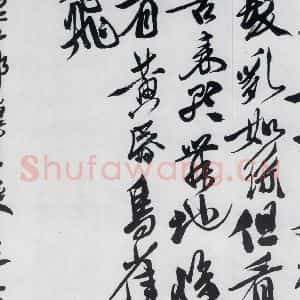 髮乱如絲但看
古来歌舞地惟
有黄昏鳥雀
飛
Shufawang.CN